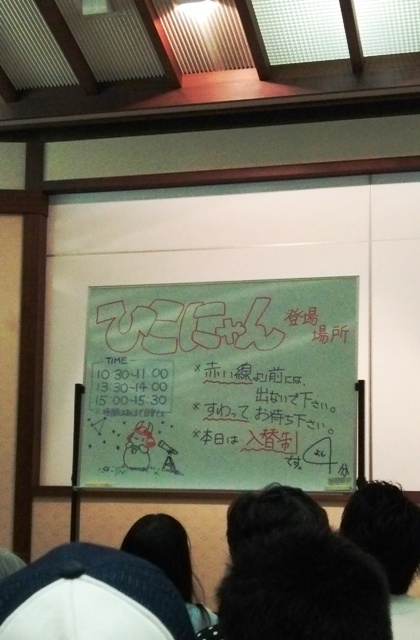 ひこにゃん 登場
場所
TIME
10:30-11:00
13:30-14:00
15:00-15:30
※赤い線より前には、
出ないで下さい。
※すわってお待ち下さい。
※本日は入替制
です。